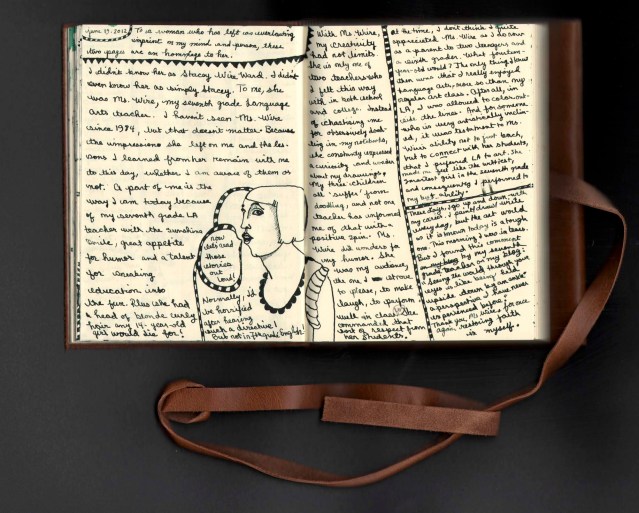 June 13, 2012
To a woman who has left an everlasting
imprint on my mind and person, these
two pages are an homage to her.
I didn't know her as Stacey Wire Ward. I didn't
even know her as simply Stacey. To me, she
was Ms. Wire, my seventh grade Language
Arts teacher. I haven't seen Ms. Wire
since 1984, but that doesn't matter. Because
the impressions she left on me and the les-
sons I learned from her remain with me
to this day, whether I am aware of them or
not. A part of me is the
way I am today because
of my seventh grade LA
teacher with the sunshine
smile, great appetite
for humor and a talent
for sneaking
education into
the fun. Plus she had
a head of blonde curly
hair any 14-year-old
girl would die for!
now
let's read
those
stories
out
loud!
Normally, I'd
be horrified
after hearing
such a directive!
But not in 7th grade English!
With Ms Wire,
my creativity
had no limits.
She is only one of
two teachers who
I felt this way
with in both school
and college. Instead
of chastising me
for obsessively dood-
ling in my notebooks,
she constantly expressed
a curiosity and wonder
about my drawings.
My three children
all "suffer" from
doodling, and not one
teacher has informed
me of that with a
positive spin. Ms.
Wire did wonders for
my humor. She
was my audience,
the one I strove
to please, to make
laugh, to perform
well in class. She
commanded that
sort of respect from
her students.
At the time, I don't think I quite
appreciated Ms. Wire as I do now
as a parent to two teenagers and
a sixth grader. What fourteen-
year-old would? The only thing I knew
then was that I really enjoyed
Language Arts, more so than my
regular Art class. After all, in
LA, I was allowed to color out-
side the lines. And for someone
who is very artistically inclin-
ed, it was testament to Ms.
Wire's ability not to just teach,
but to connect with her students,
that I preferred LA to art. She
made me feel like the wittiest,
smartest girl in the seventh grade
and consequently I performed to
my best ability.
These days, I go up and down with
my career. I paint/draw/write
everyday, but the art world
as it is known today is a tough
one. This morning I was in tears.
But I found this comment
by my seventh
grade teacher on my blog:
Seeing the world through your
eyes is like being held
upside down by an ankle
a perspective I have never
experienced before.
Thank you, Ms Wire, for once
again, restoring faith
in myself.